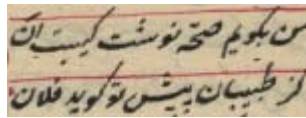 من بگویم صحه نوشت کیست آن
کز طبیبان پیش تو گوید فلان